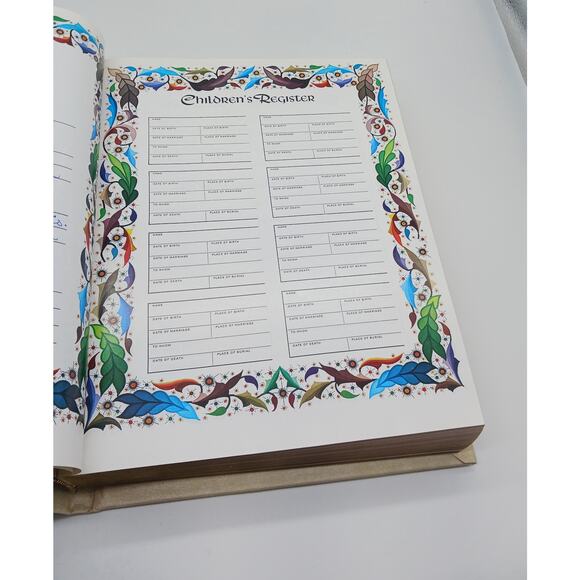 Children's Register
NAME
DATE OF BIRTH PLACE OF BIRTH
DATE OF MARRIAGE PLACE OF MARRIAGE
TO WHOM
DATE OF DEATH PLACE OF BURIAL
NAME
DATE OF BIRTH PLACE OF BIRTH
DATE OF MARRIAGE PLACE OF MARRIAGE
TO WHOM
DATE OF DEATH PLACE OF BURIAL
NAME
DATE OF BIRTH PLACE OF BIRTH
DATE OF MARRIAGE PLACE OF MARRIAGE
TO WHOM
DATE OF DEATH PLACE OF BURIAL
NAME
DATE OF BIRTH PLACE OF BIRTH
DATE OF MARRIAGE PLACE OF MARRIAGE
TO WHOM
DATE OF DEATH PLACE OF BURIAL
NAME
DATE OF BIRTH PLACE OF BIRTH
DATE OF MARRIAGE PLACE OF MARRIAGE
TO WHOM
DATE OF DEATH PLACE OF BURIAL
NAME
DATE OF BIRTH PLACE OF BIRTH
DATE OF MARRIAGE PLACE OF MARRIAGE
TO WHOM
DATE OF DEATH PLACE OF BURIAL
NAME
DATE OF BIRTH PLACE OF BIRTH
DATE OF MARRIAGE PLACE OF MARRIAGE
TO WHOM
DATE OF DEATH PLACE OF BURIAL
NAME
DATE OF BIRTH PLACE OF BIRTH
DATE OF MARRIAGE PLACE OF MARRIAGE
TO WHOM
DATE OF DEATH PLACE OF BURIAL